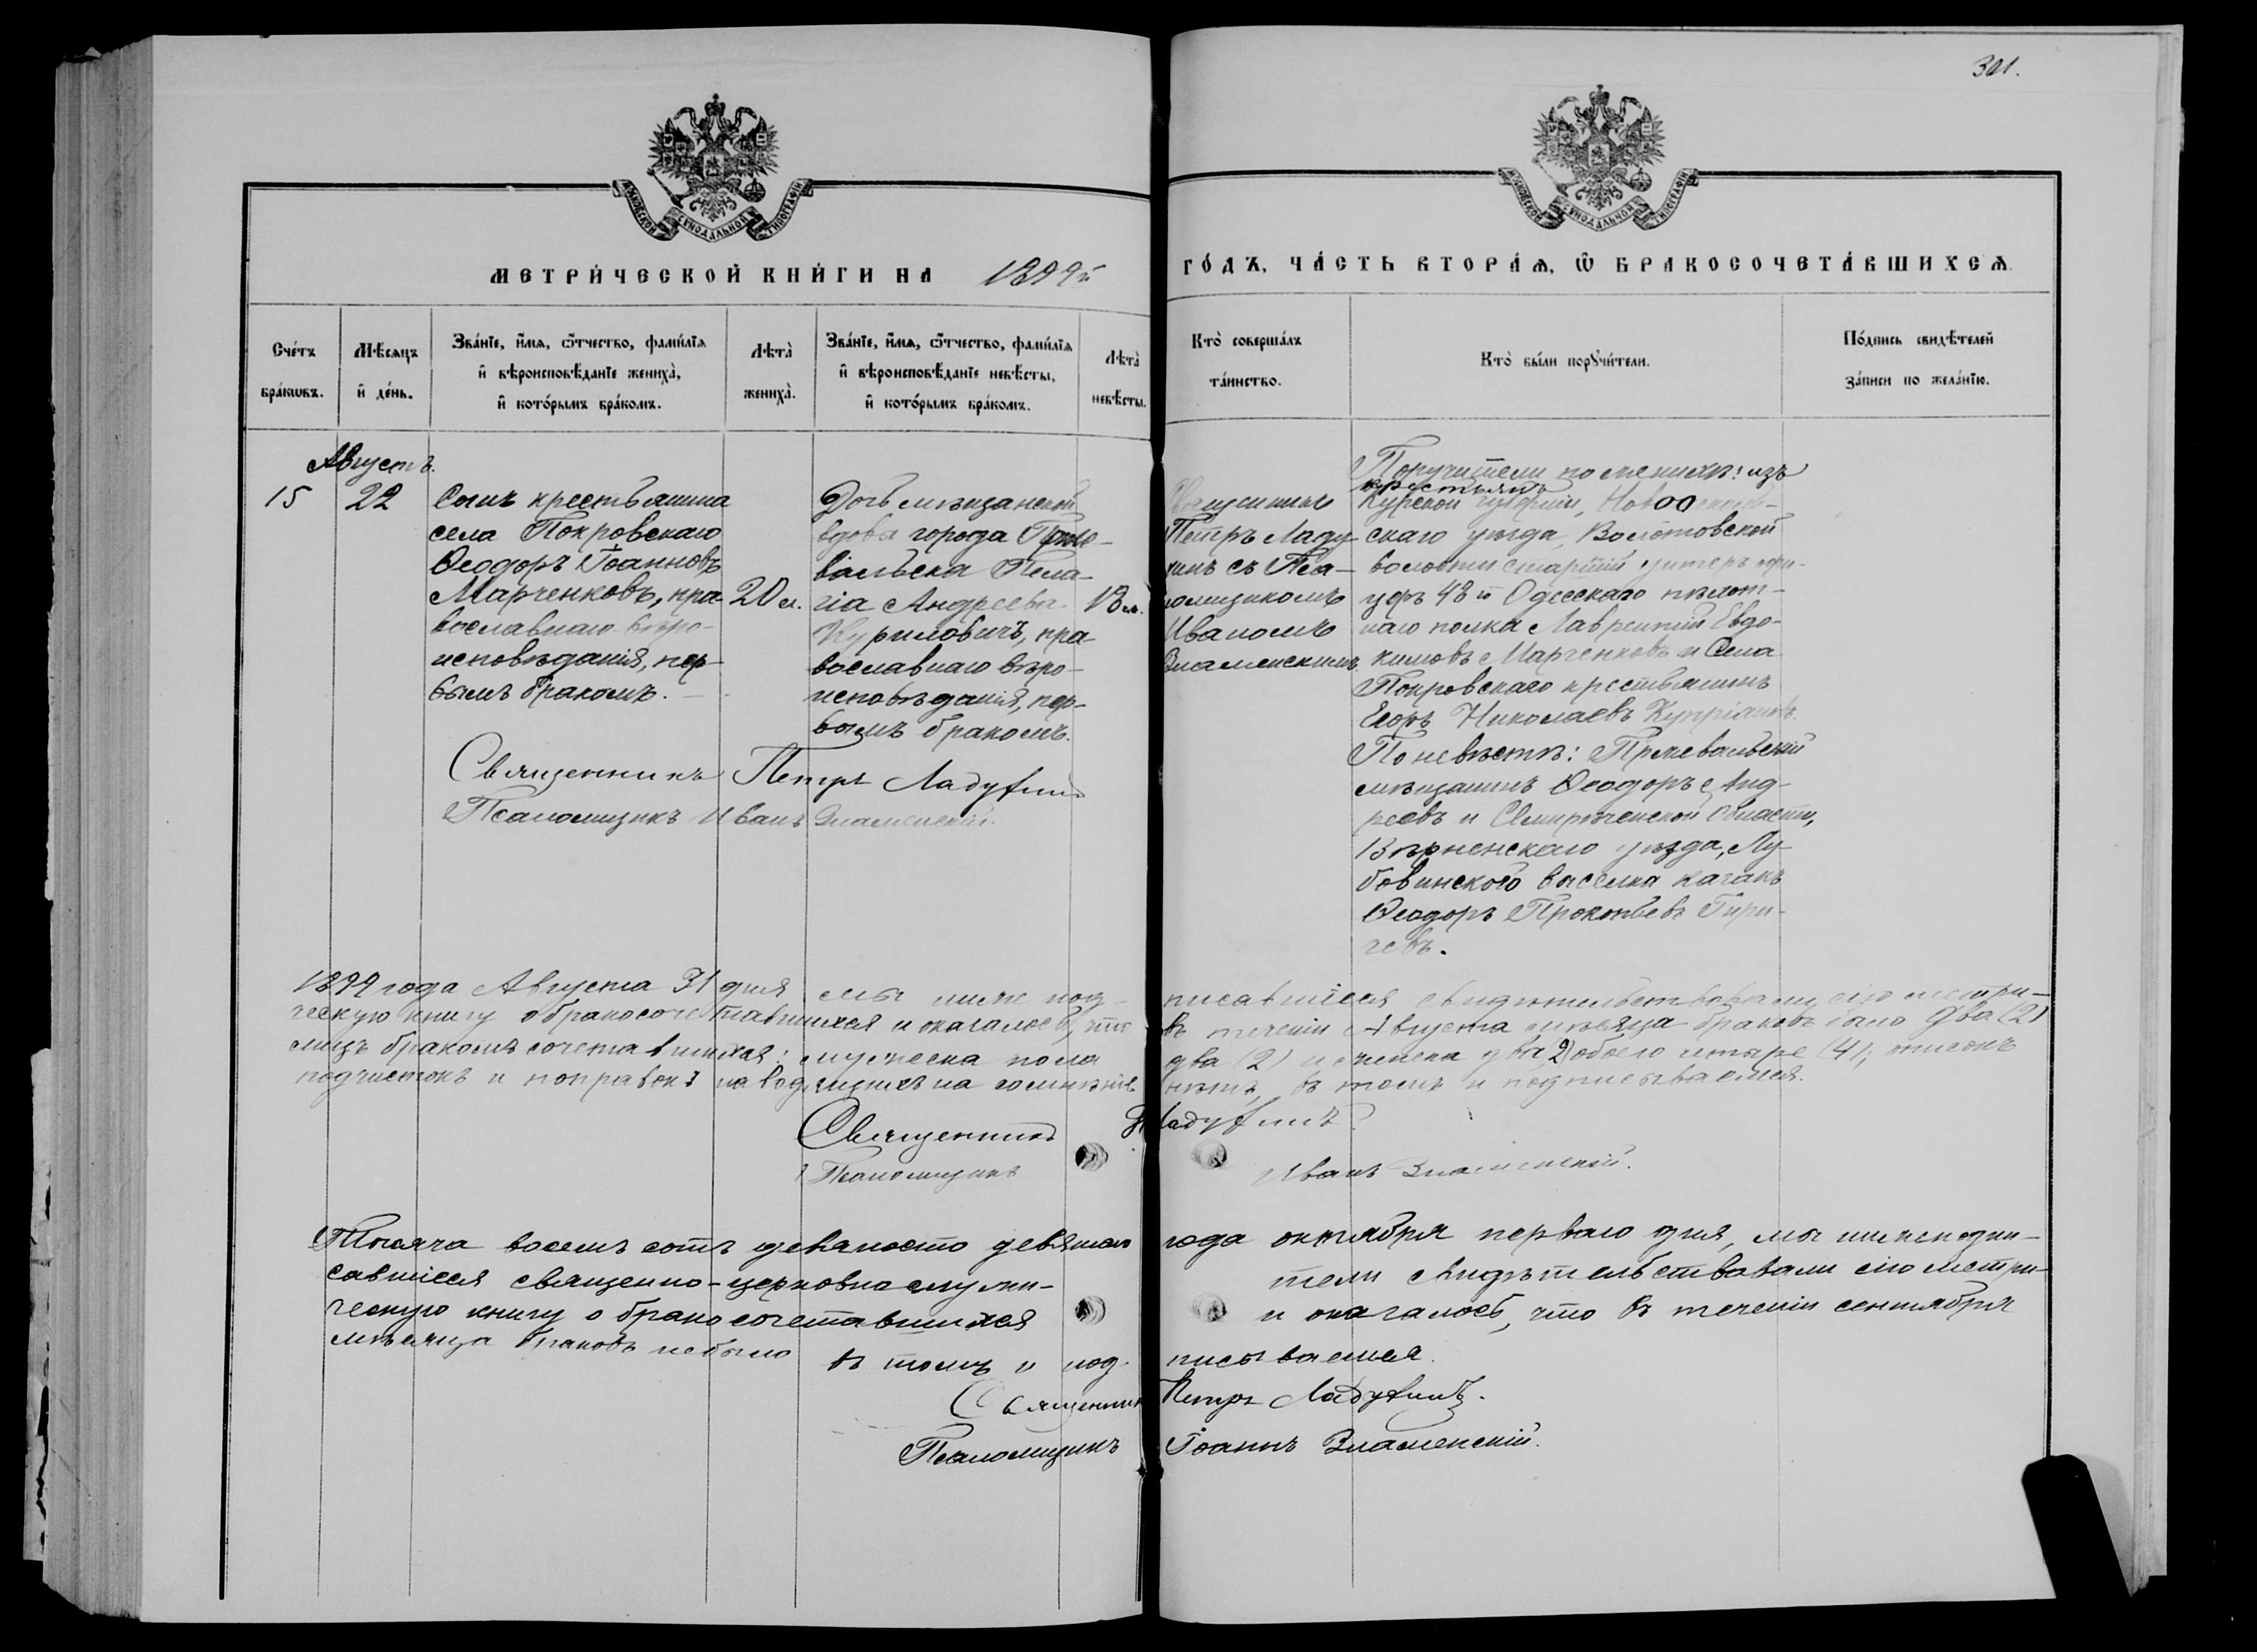 301.
МОСКОВСКОЙ СѴНОДАЛЬНОЙ ТИПОГРАФІИ
МОСКОВСКОЙ СѴНОДАЛЬНОЙ ТИПОГРАФІИ
МЕТРИ́ЧЕСКОЙ КНИ́ГИ НА 1899й
ГО́ДЪ, ЧА́СТЬ ВТОРА́Ѧ, Ѽ БРАКОСОЧЕТА́ВШИХСѦ
Сче́тъ бра́кѡвъ.
Мѣ́сѧцъ и҆ де́нь.
Зва́нїе, и҆́мѧ, ѻ҆́тчество, фами́лїѧ и҆ вѣроисповѣ́данїе жениха̀, и҆ кото́рымъ бра́комъ.
Лѣта̀ жениха̀.
Зва́нїе, и҆́мѧ, ѻ҆́тчество, фами́лїѧ и҆ вѣроисповѣ́данїе невѣ́сты, и҆ кото́рымъ бра́комъ.
Лѣта̀ невѣ́сты.
Кто̀ соверша́лъ та́инство.
Кто̀ бы́ли порꙋчи́тели.
По́дпись свидѣ́телей за́писи по жела́нїю.
Августъ.
15
22
Сынъ крестьянина
села Покровскаго
Ѳеодоръ Іоанновъ
Марченковъ, пра-
вославнаго вѣро-
исповѣданія, пер-
вымъ бракомъ.
20 л.
Дочь мѣщанской
вдовы города Прже-
вальска Пела-
гіа Андреева
Куриловичъ, пра
вославнаго вѣро-
исповѣданія, пер-
вымъ бракомъ.
18 л.
Священникъ
Петръ Ладу-
хинъ съ Пса-
ломщикомъ
Иваномъ
Знаменскимъ.
Поручители по женихѣ: изъ
крестьянъ
Курской губерніи, Новоосколь-
скаго уѣзда, Волотовской
волости старшій унтеръ офи-
церъ 48й Одесскаго пѣхот-
наго полка Лаврентій Евдо-
кимовъ Марченковъ и Села
Покровскаго крестьянинъ
Егоръ Николаевъ Купріановъ.
По невѣстѣ: Пржевальскій
мѣщанинъ Ѳеодоръ Анд-
реевъ и Семирѣченской области,
Вѣрненскаго уѣзда, Лу-
бовинского выселка казакъ
Ѳеодоръ Прокопьевъ Гири-
чевъ.
Священникъ Петръ Ладухинъ
Псаломщикъ Иванъ Знаменскій.
1899 года Августа 31 дня мы ниже под-писавшіеся свидѣтельствовали сію метри-
ческую книгу о бракосочетавшихся и оказалось, что въ теченіи Августа мѣсяца браковъ было два (2)
лицъ бракомъ сочетавшихся: мужеска пола два (2) и женска два (2) обоего четыре (4), писокъ
подчистокъ и поправокъ наводящихъ на сомнѣніе нѣтъ, въ томъ и подписываемся.
Священникъ П Ладухинъ
Псаломщикъ Иванъ Знаменскій.
Тысяча восемь сотъ девяносто девятаго года октября перваго дня, мы нижеподпи-
савшіеся священно-церковнослужи-тели свидѣтельствовали сію метри-
ческую книгу о бракосочетавшихся и оказалось, что въ теченіи сентября
мѣсяца браковъ небыло въ томъ и под-писываемся.
Священникъ Петръ Ладухинъ.
Псаломщикъ Іоаннъ Знаменскій.